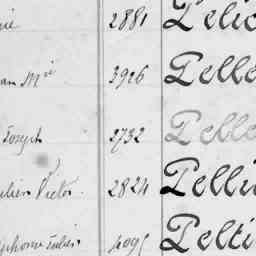 2881 Pelic
an Mie 3926 Pelle
Joseph 2732 Pelle
ulien Victor 2824 Pelli
phonse Julien 4095 Pelti